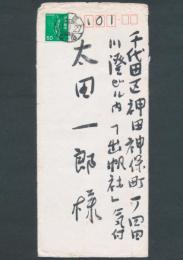 101
千代田区神田神保町一ノ四四
川澄ビル内「出帆社」気付
太田一郎様
50